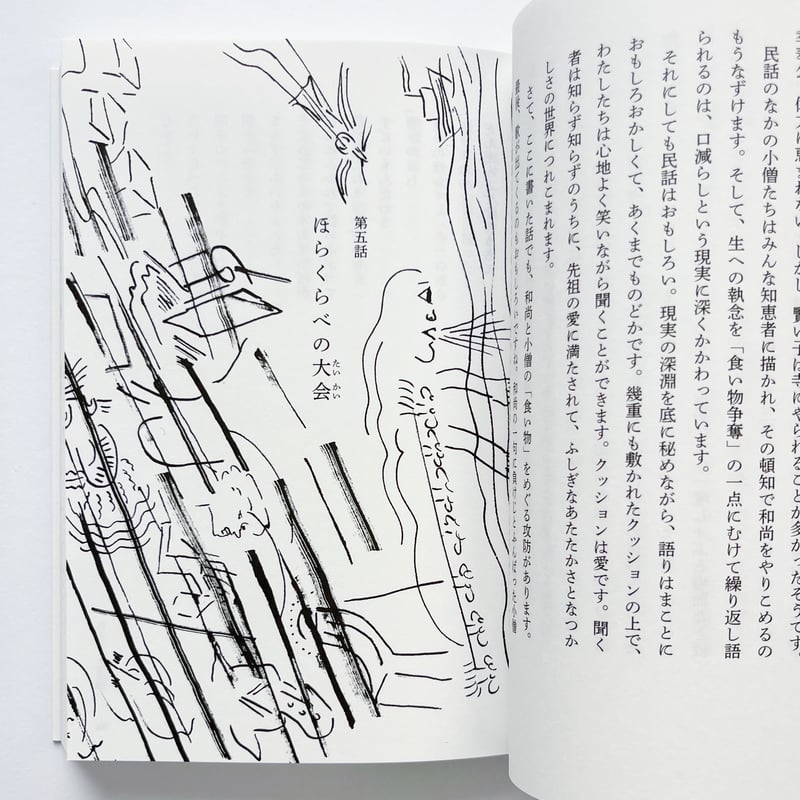 しかし、賢い子は寺にやられることが多かったそうです。
民話のなかの小僧たちはみんな知恵者に描かれ、その頓知で和尚をやりこめるの
もうなずけます。そして、生への執念を「食い物争奪」の一点にむけて繰り返し語
られるのは、口減らしという現実に深くかかわっています。
それにしても民話はおもしろい。現実の深淵を底に秘めながら、語りはまことに
おもしろおかしくて、あくまでものどかです。幾重にも敷かれたクッションの上で、
わたしたちは心地よく笑いながら聞くことができます。クッションは愛です。聞く
者は知らず知らずのうちに、先祖の愛に満たされて、ふしぎなあたたかさとなつか
しさの世界につれこまれます。
さて、ここに書いた話でも、和尚と小僧の「食い物」をめぐる攻防があります。
最後、歌が出てくるのもおもしろいですね。和尚の一句に負けじとふんばった小僧
第五話
ほらくらべの大会
たいかい